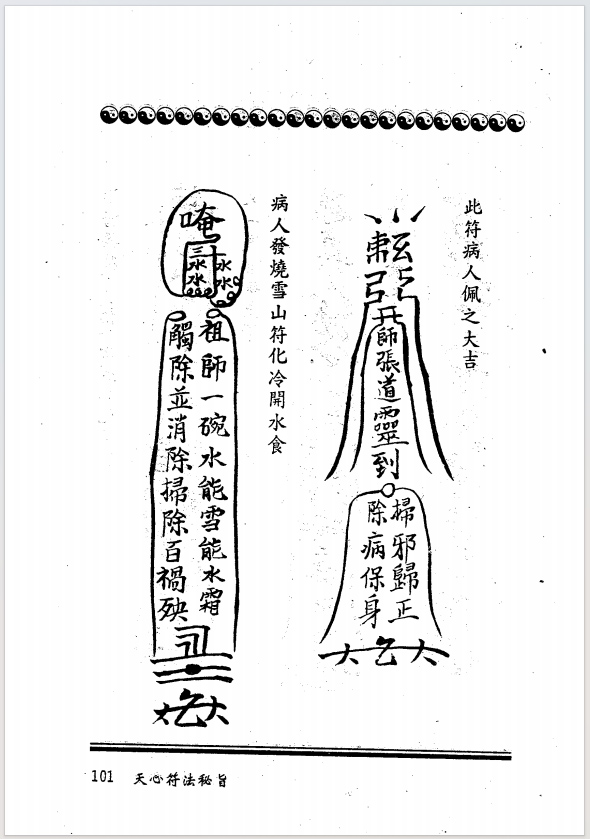 此符病人佩之大吉
師張道靈到
掃邪歸正
除病保身
病人發燒雪山符化冷開水食
唵
水水
水水
祖師一碗水能雪能水霜
觸除並消除掃除百禍殃
101 天心符法秘旨